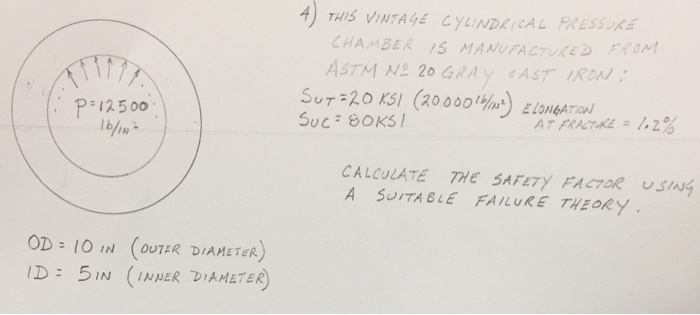 4) THIS VINTAGE CYLINDRICAL PRESSURE
CHAMBER IS MANUFACTURED FROM
ASTM Nº 20 GRAY CAST IRON:
SUT=20 KSI (20000 lb/IN²) ELONGATION
SUC= 80KSI AT FRACTURE = 1.2%
P=12500
lb/IN²
CALCULATE THE SAFETY FACTOR USING
A SUITABLE FAILURE THEORY.
OD = 10 IN (OUTER DIAMETER)
ID = 5 IN (INNER DIAMETER)